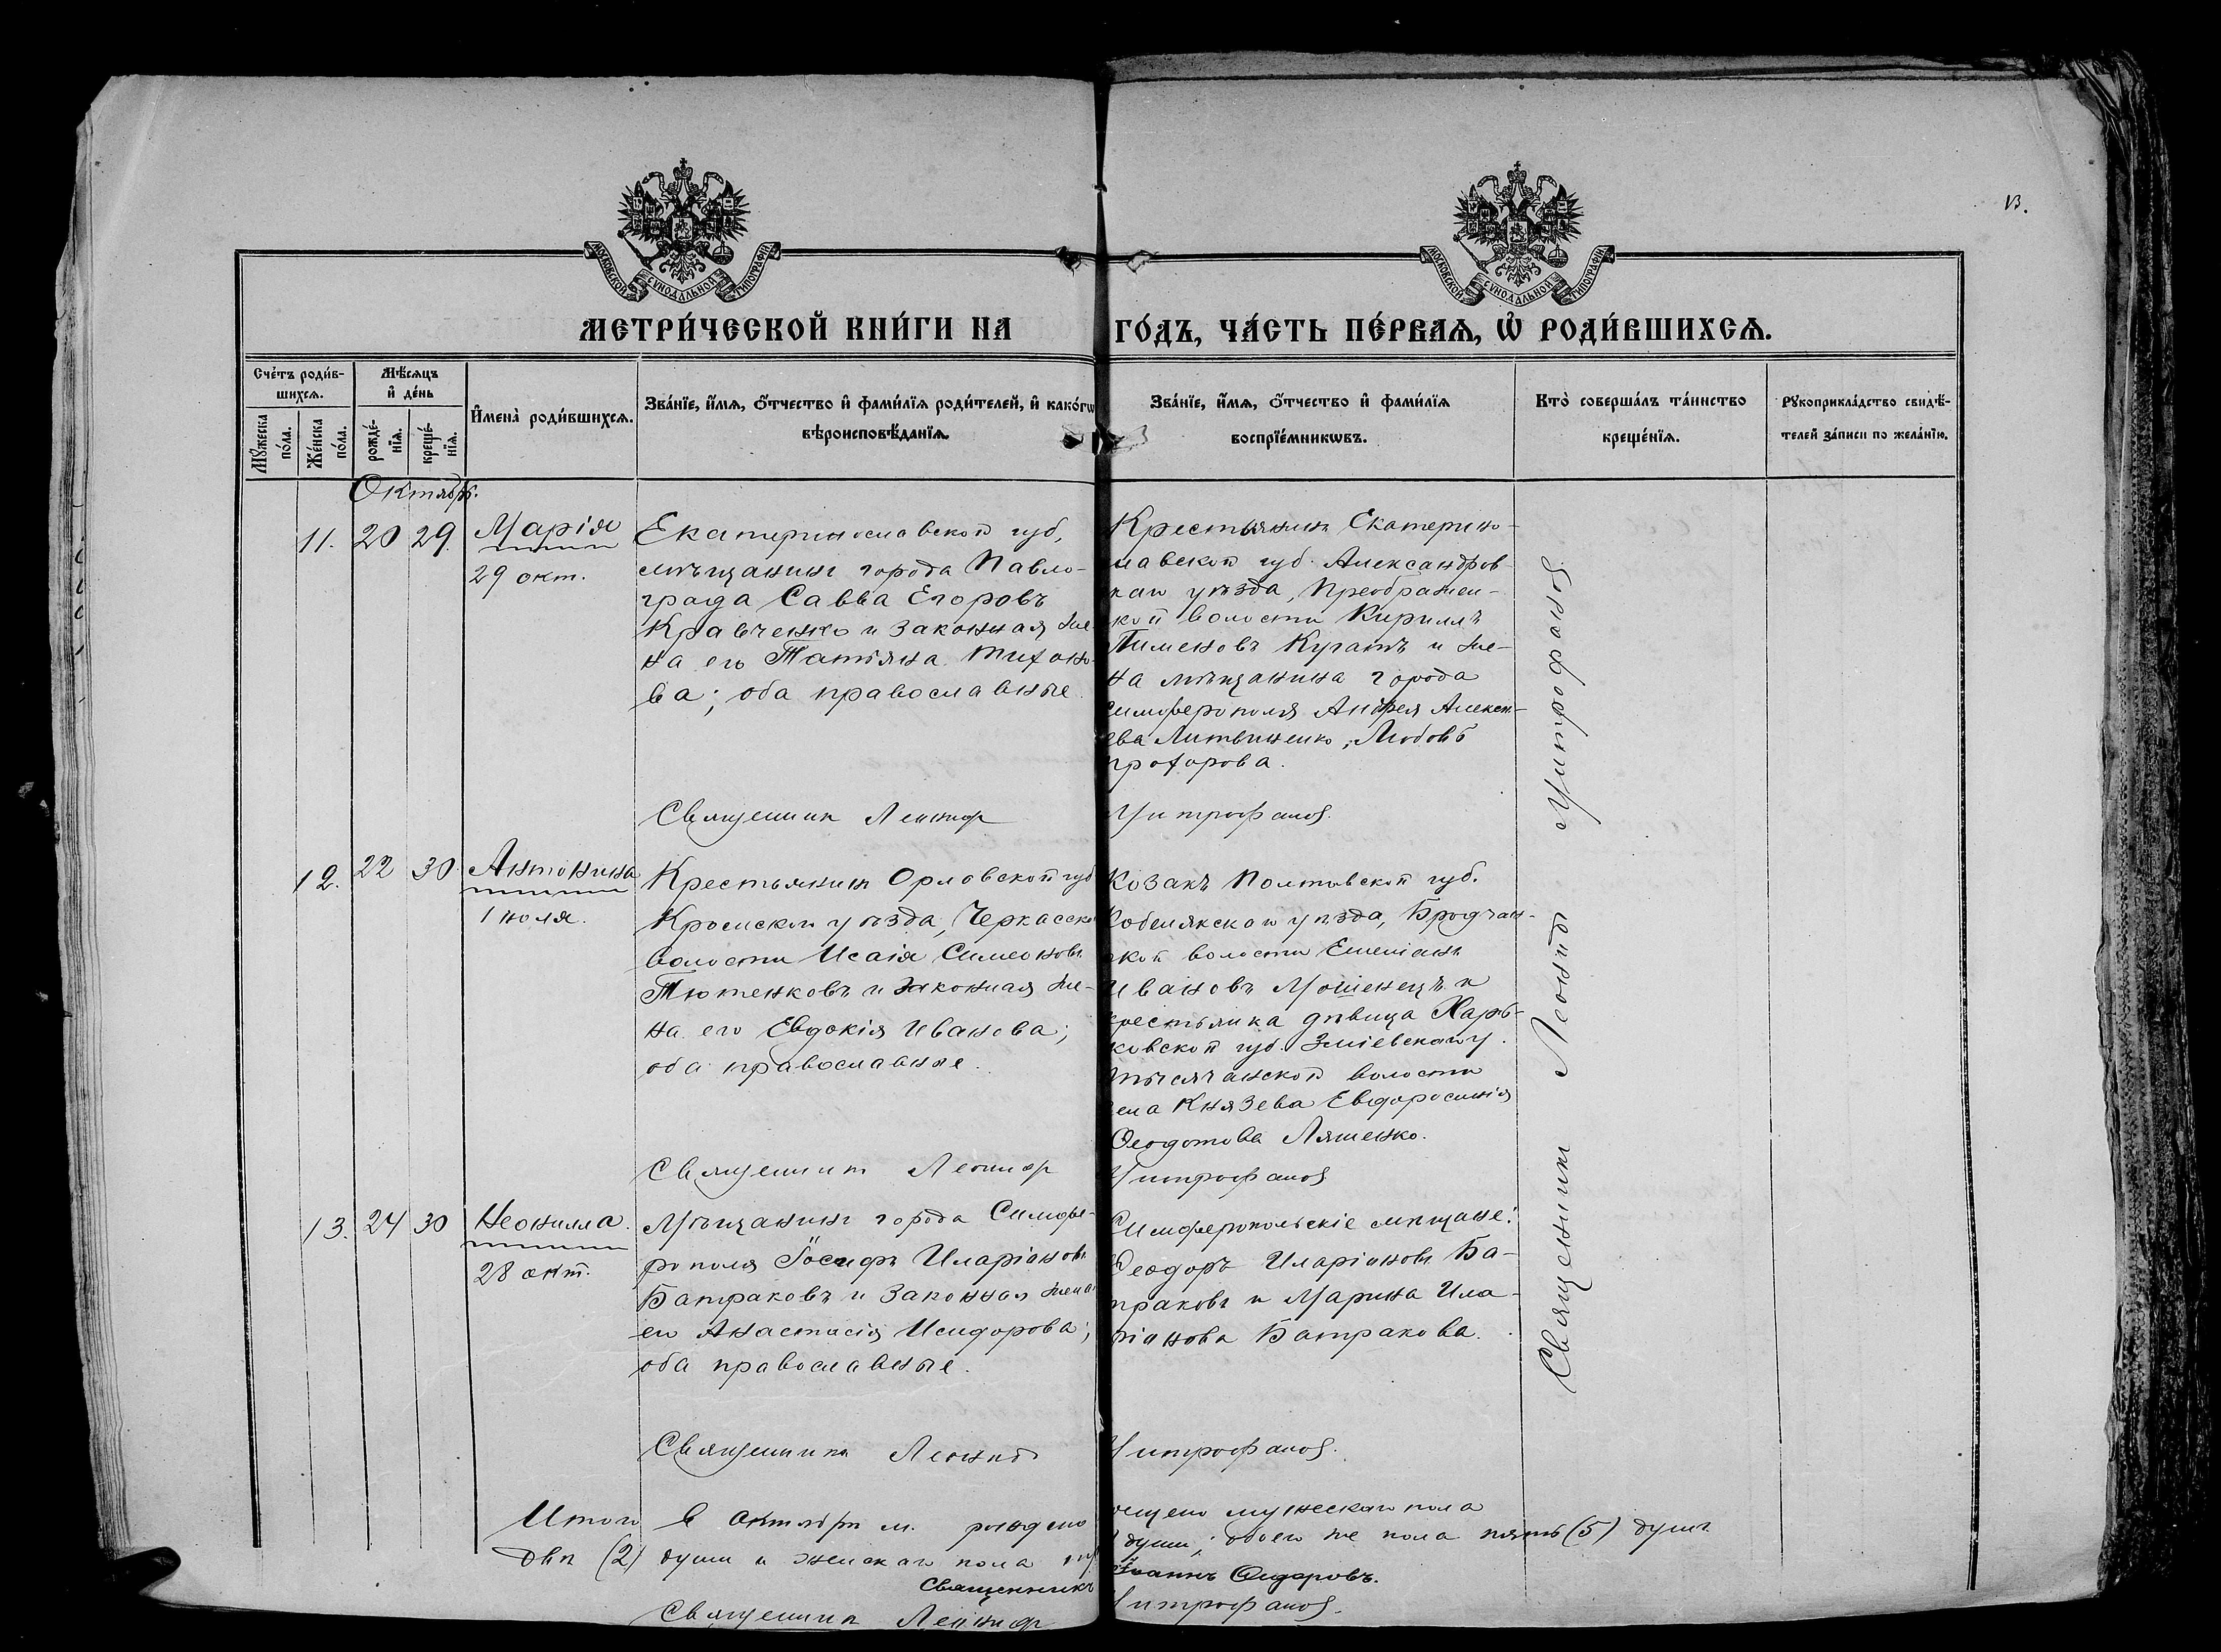 13.
МОСКОВСКОЙ СУНОДАЛЬНОЙ ТИПОГРАФІИ
МОСКОВСКОЙ СУНОДАЛЬНОЙ ТИПОГРАФІИ
МЕТРИ́ЧЕСКОЙ КНИ́ГИ НА ГО́ДЪ, ЧА́СТЬ ПЕ́РВАѦ, Ѡ҆ РОДИ́ВШИХСѦ.
Сче́тъ роди́в-
шихсѧ.
Мꙋ́жеска
по́ла.
Же́нска
по́ла.
Мѣ́сѧцъ
и҆ де́нь
рожде́-
нїѧ.
креще́-
нїѧ.
И҆мена̀ роди́вшихсѧ.
Зва́нїе, и҆́мѧ, ѻ҆́тчество и҆ фами́лїѧ роди́телей, и҆ како́гѡ
вѣроисповѣ́данїѧ.
Зва́нїе, и҆́мѧ, ѻ҆́тчество и҆ фами́лїѧ
воспрїе́мникѡвъ.
Кто̀ соверша́лъ та́инство
креще́нїѧ.
Рꙋкоприкла́дство свидѣ́-
телей за́писи по жела́нїю.
Октябрь.
11. 20 29. Марія
29 окт.
Екатеринославской губ,
мѣщанинъ города Павло-
града Савва Егоровъ
Кравченко и законная же-
на его Татіяна Тихоно-
ва; оба православные.
Крестьянинъ Екатерино-
славской губ. Александров-
скаго уѣзда, Преображен-
ской волости Кириллъ
Пименовъ и же-
на мѣщанина города
Симферополя Андрея Алексѣ-
ева Литвиненко, Любовь
Прохорова.
Священникъ Леонидъ Митрофановъ.
12. 22 30 Антонина
1 июля.
Крестьянинъ Орловской губ
Кромскаго уѣзда, Черкасской
волости Исаія Симеоновъ
Тютенковъ и законная же-
на его Евдокія Иванова;
оба православные.
Козакъ Полтавской губ.
Кобелякскаго уѣзда, Бродчан-
ской волости Емеліанъ
Ивановъ Мошенецъ и
крестьянка дѣвица Харь-
ковской губ. Зміевскаго у.
волости
села Князева Евфросинія
Ѳеодотова Ляшенко.
Священникъ Леонидъ Митрофановъ
13. 24 30 Неонилла.
28 окт.
Мѣщанинъ города Симфе-
рополя Іосифъ Иларіоновъ
Батраковъ и законная жена
его Анастасія Исидорова;
оба православные.
Симферопольскіе мѣщане:
Ѳеодоръ Иларіоновъ Ба-
траковъ и Марина Ила-
ріонова Батракова.
Священникъ Леонидъ Митрофановъ.
Священникъ Леонидъ Митрофановъ.
Итого в октябрѣ м. рождено крещено мужескаго пола
двѣ (2) души и женскаго пола души; обоего же пола пять (5) душъ.
Священникъ Іоаннъ Сидоровъ.
Священникъ Леонидъ Митрофановъ.